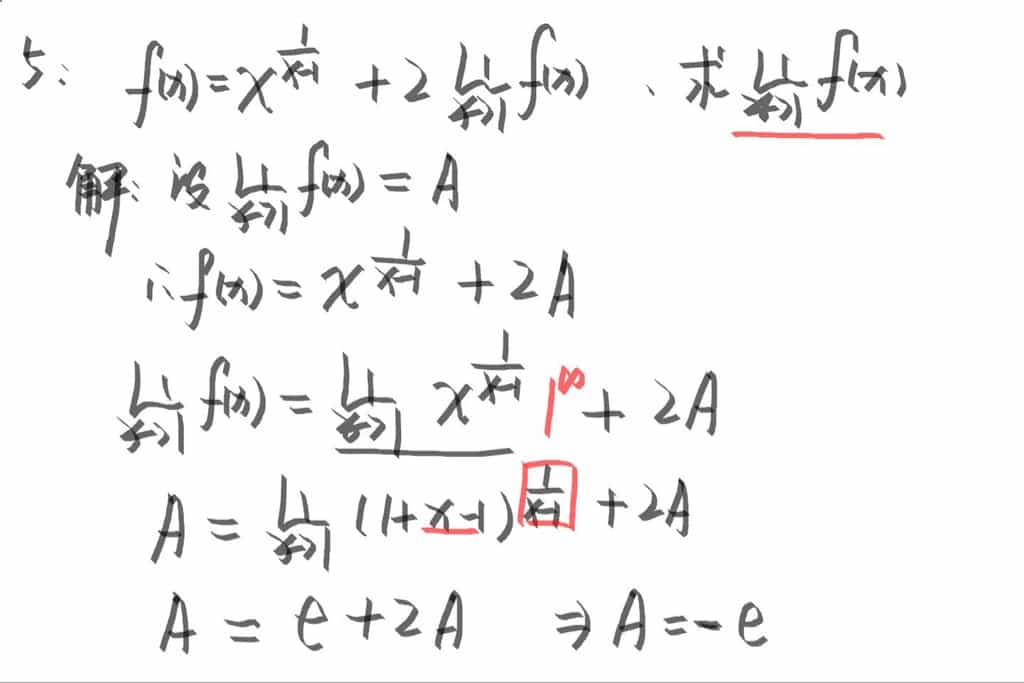 5: f(x)=x^{\frac{1}{x-1}}+2\lim_{x→1}f(x)、求\lim_{x→1}f(x)
解:设\lim_{x→1}f(x)=A
∴f(x)=x^{\frac{1}{x-1}}+2A
\lim_{x→1}f(x)=\lim_{x→1}x^{\frac{1}{x-1}} 1^∞+2A
A=\lim_{x→1}(1+x-1)^{\frac{1}{x-1}}+2A
A=e+2A ⇒A=-e